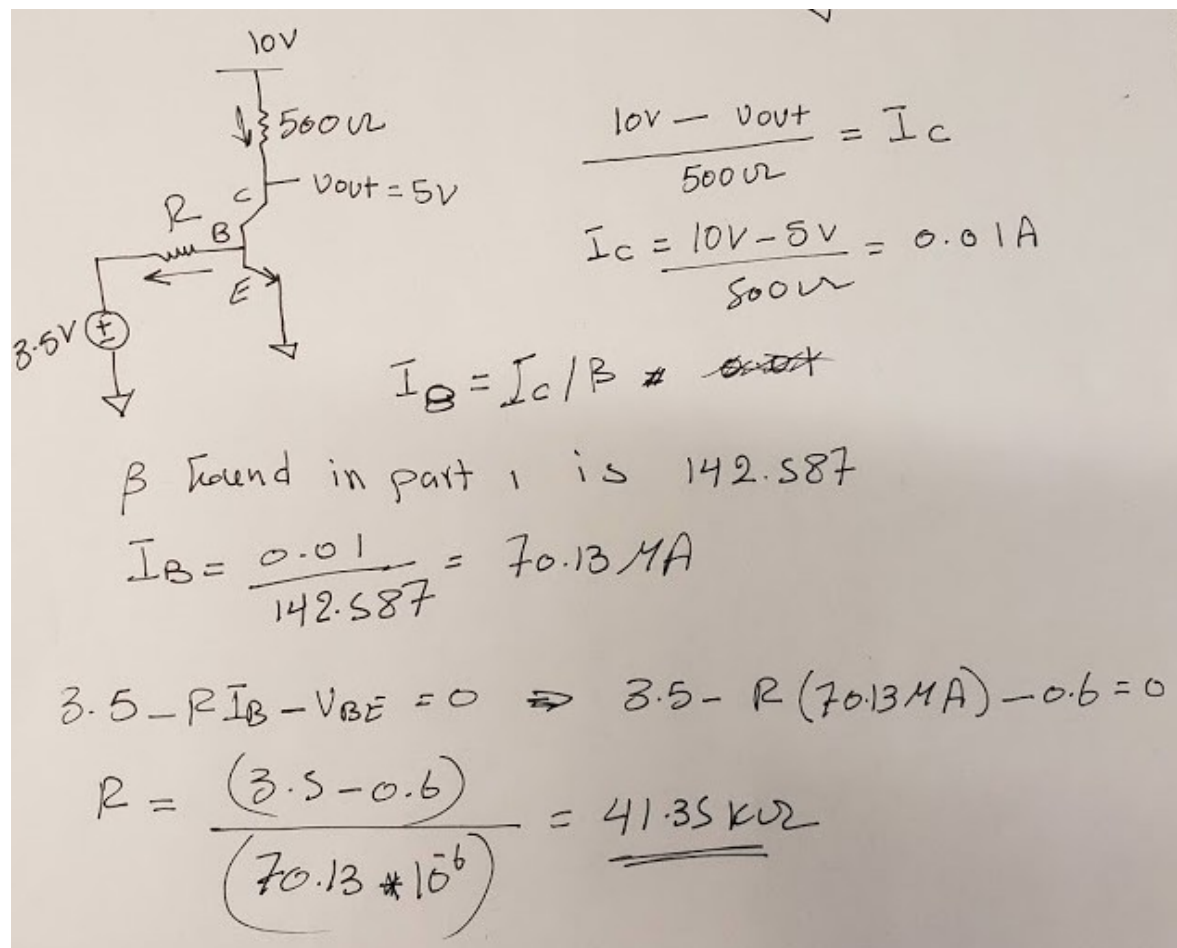 10V
500Ω
Vout = 5V
C
R
B
E
3.5V
+
-
10V - Vout / 500Ω = Ic
Ic = 10V - 5V / 500Ω = 0.01A
IB = Ic / B
β found in part 1 is 142.587
IB = 0.01 / 142.587 = 70.13 MA
3.5 - RIB - VBE = 0 ⇒ 3.5 - R (70.13 MA) - 0.6 = 0
R = (3.5 - 0.6) / (70.13 * 10^-6) = 41.35 KΩ